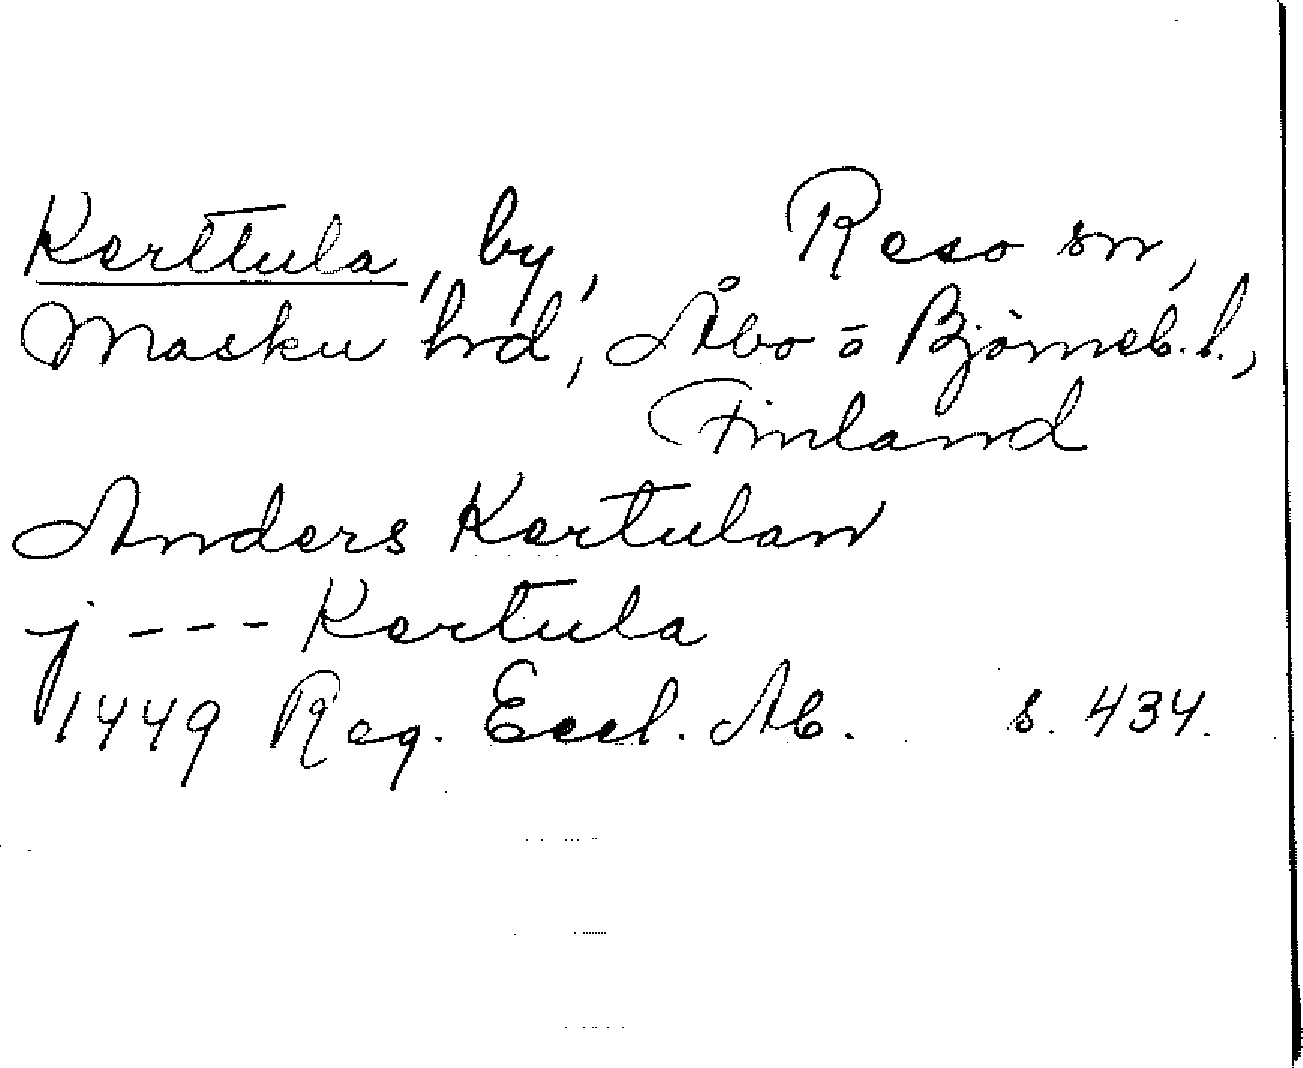 Kerttula, by, Reso sn,
Masku hrd, Åbo o Björneb. l.,
Finland
Anders Kertulan
j --- Kertula
1449 Reg. Eccl. Ab. s. 434.